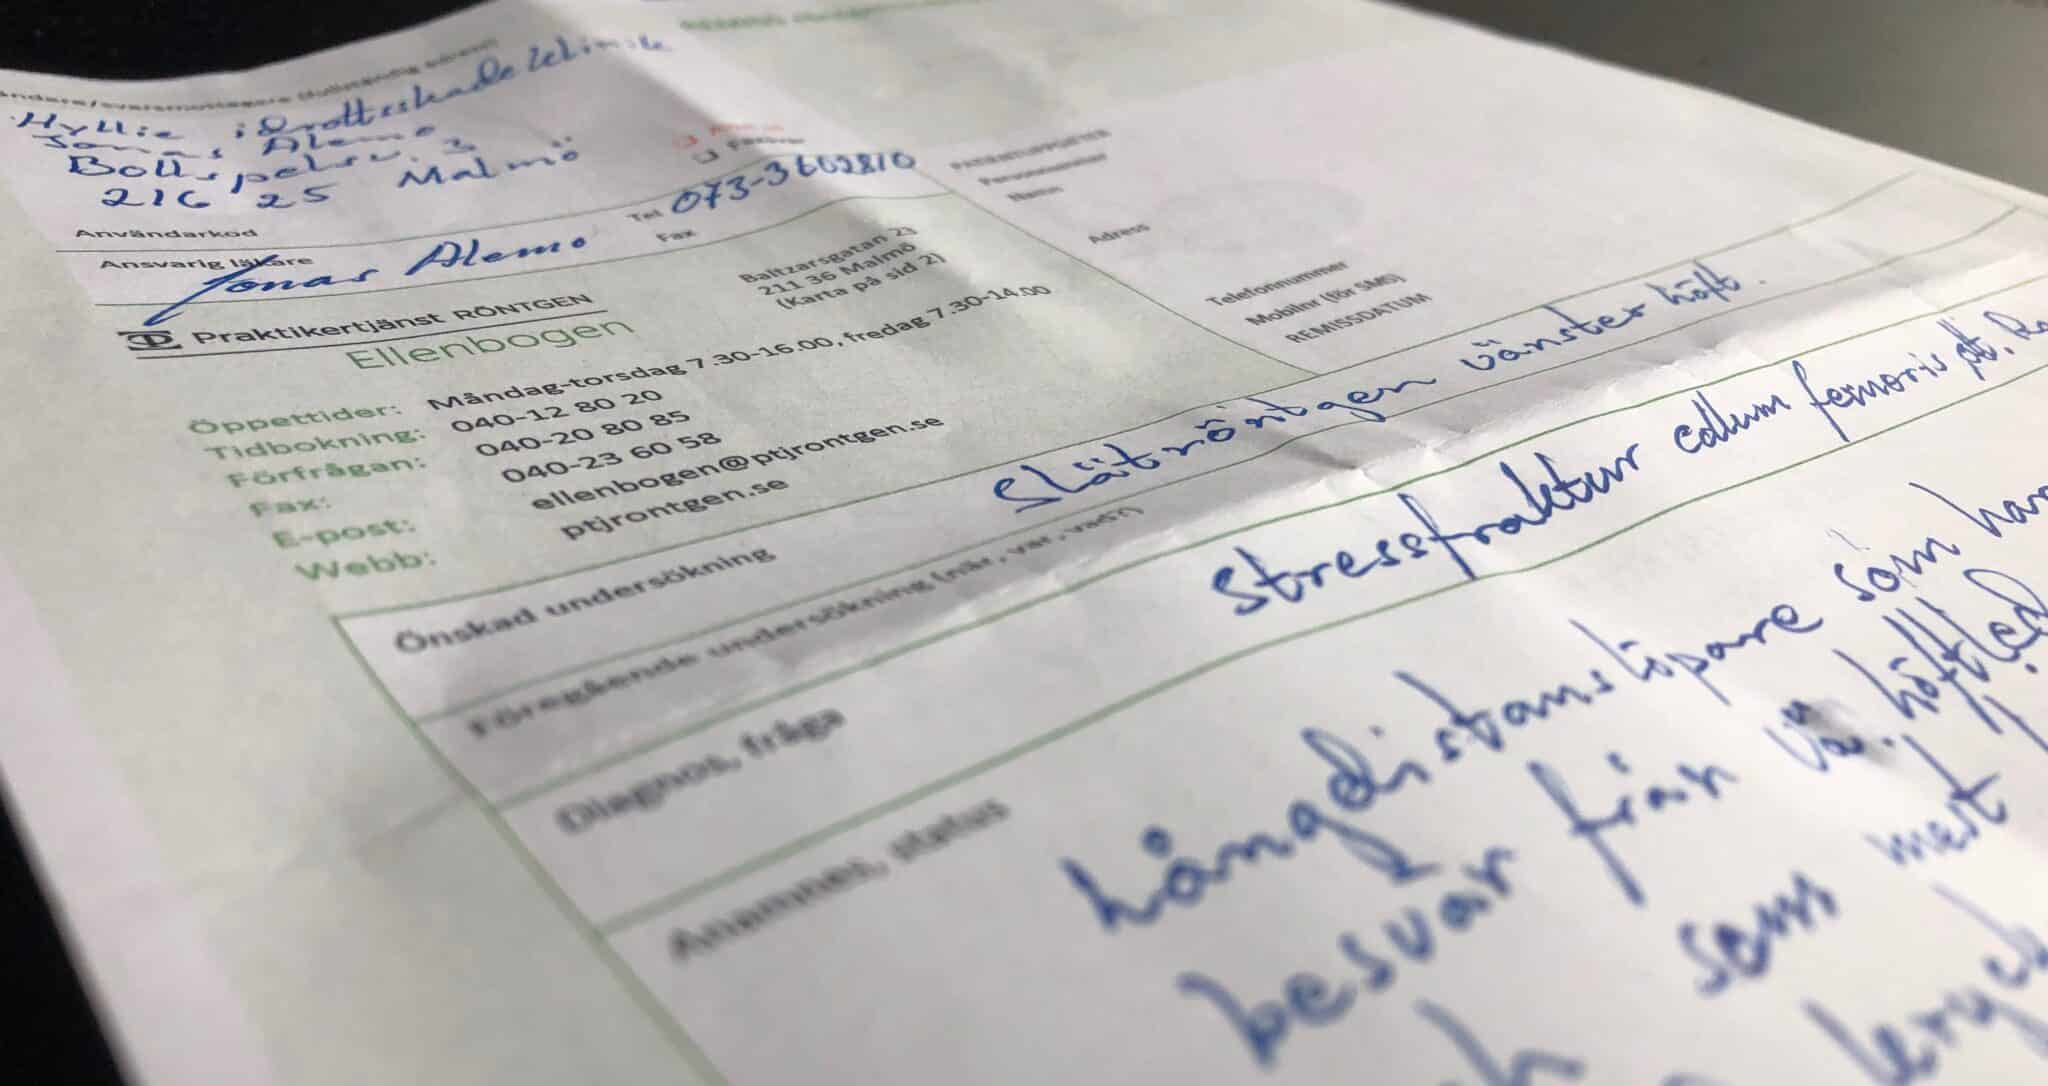 (fullständig adress)
Hyllie idrottsskadeklinik
Jonas Alemo
Bollspelsv. 3
216 25 Malmö
Användarkod
Tel 073-3602810
Fax
Ansvarig läkare
Jonas Alemo
Praktikertjänst RÖNTGEN
Ellenbogen
Baltzarsgatan
211 36 Malmö
(Karta på sid 2)
Öppettider: Måndag-torsdag 7.30-16.00, fredag 7.30-14.00
Tidbokning: 040-12 80 20
Förfrågan: 040-20 80 85
Fax: 040-23 60 58
E-post: ellenbogen@ptjrontgen.se
Webb: ptjrontgen.se
PATIENTUPPGIFTER
Personnummer
Namn
Adress
Telefonnummer
Mobilnr (för SMS)
REMISSDATUM
Önskad undersökning Slätröntgen vänster höft.
Föregående undersökning (när, var, vad?)
Diagnos, fråga Stressfraktur collum femoris
Anamnes, status Långdistanslöpare som har
besvär från vä. höftled
som mest